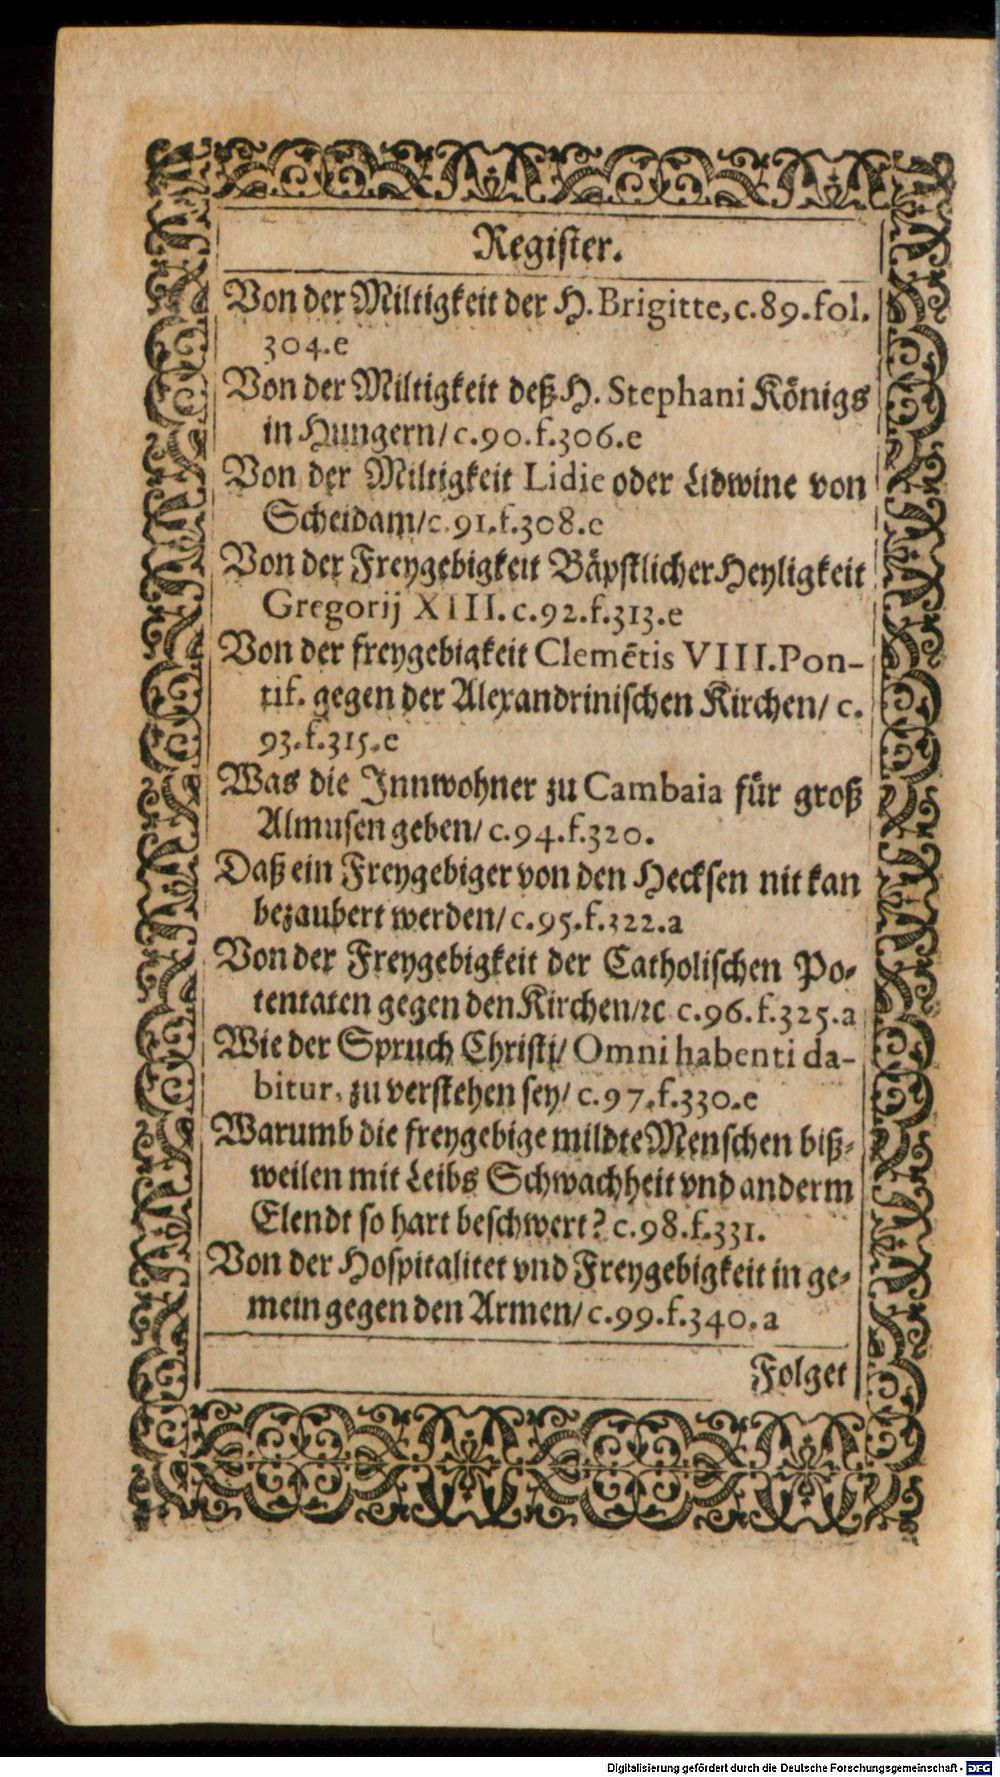 Register.
Von der Miltigkeit der H. Brigitte, c. 89. fol.
304. e
Von der Miltigkeit deß H. Stephani Königs
in Hungern / c. 90. f. 306. e
Von der Miltigkeit Lidie oder Lidwine von
Scheidam / c. 91. f. 308. e
Von der Freygebigkeit Bäpstlicher Heyligkeit
Gregorij XIII. c. 92. f. 313. e
Von der freygebigkeit Clemētis VIII. Pon-
tif. gegen der Alexandrinischen Kirchen / c.
93. f. 315. e
Was die Innwohner zu Cambaia für groß
Almusen geben / c. 94. f. 320.
Daß ein Freygebiger von den Hecksen nit kan
bezaubert werden / c. 95. f. 322. a
Von der Freygebigkeit der Catholischen Po-
tentaten gegen den Kirchen / ꝛc c. 96. f. 325. a
Wie der Spruch Christi / Omni habenti da-
bitur, zu verstehen sey / c. 97. f. 330. e
Warumb die freygebige mildte Menschen biß-
weilen mit Leibs Schwachheit vnd anderm
Elendt so hart beschwert? c. 98. f. 331.
Von der Hospitalitet vnd Freygebigkeit in ge-
mein gegen den Armen / c. 99. f. 340. a
Folget
Digitalisierung gefördert durch die Deutsche Forschungsgemeinschaft - DFG